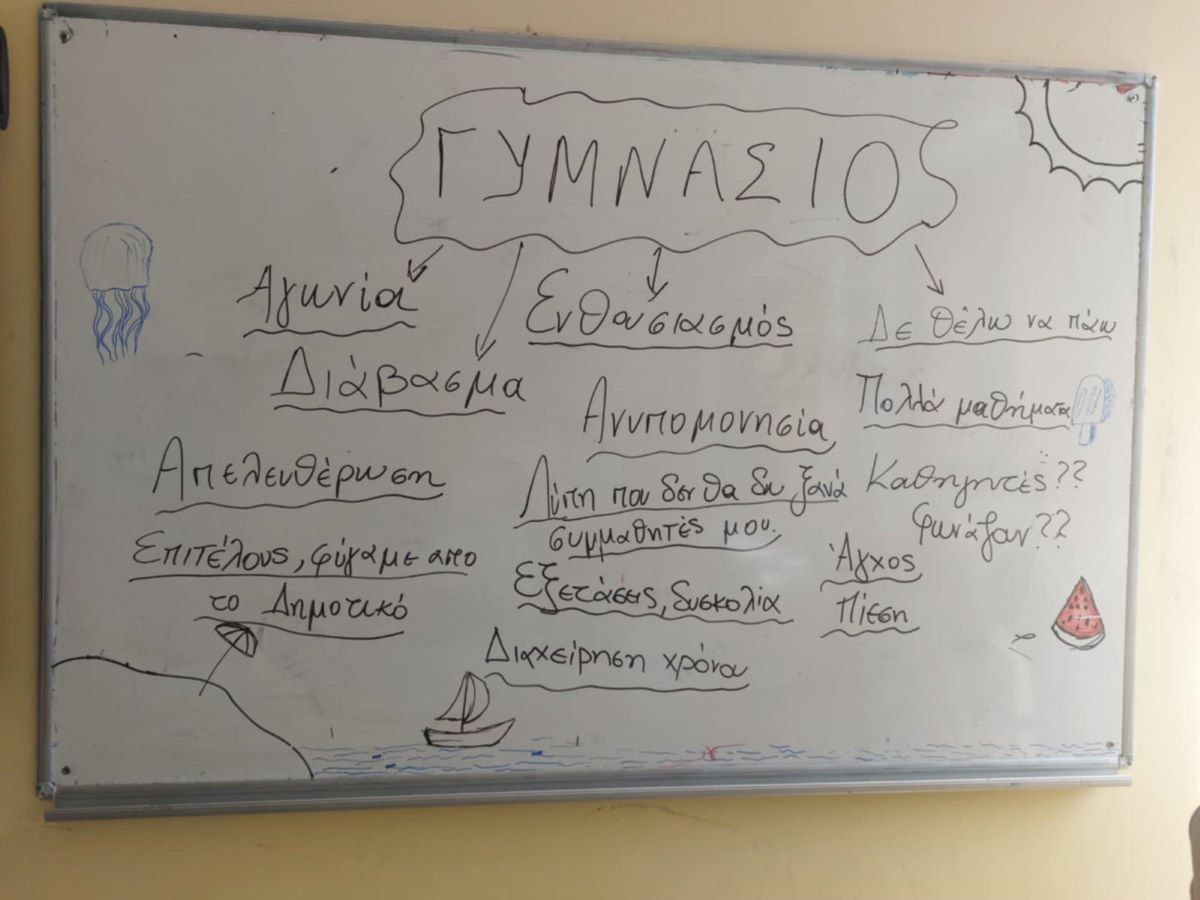 ΓΥΜΝΑΣΙΟ
Αγωνία
Διάβασμα
Απελευθέρωση
Επιτέλους, φύγαμε απο
το Δημοτικό
Ενθουσιασμός
Ανυπομονησία
Λύπη που δεν θα δω ξανά
συμμαθητές μου.
Εξετάσεις, δυσκολία
Διαχείρηση χρόνου
Δε θέλω να πάω
Πολλά μαθήματα
Καθηγητές??
φωνάζουν??
Άγχος
Πίεση